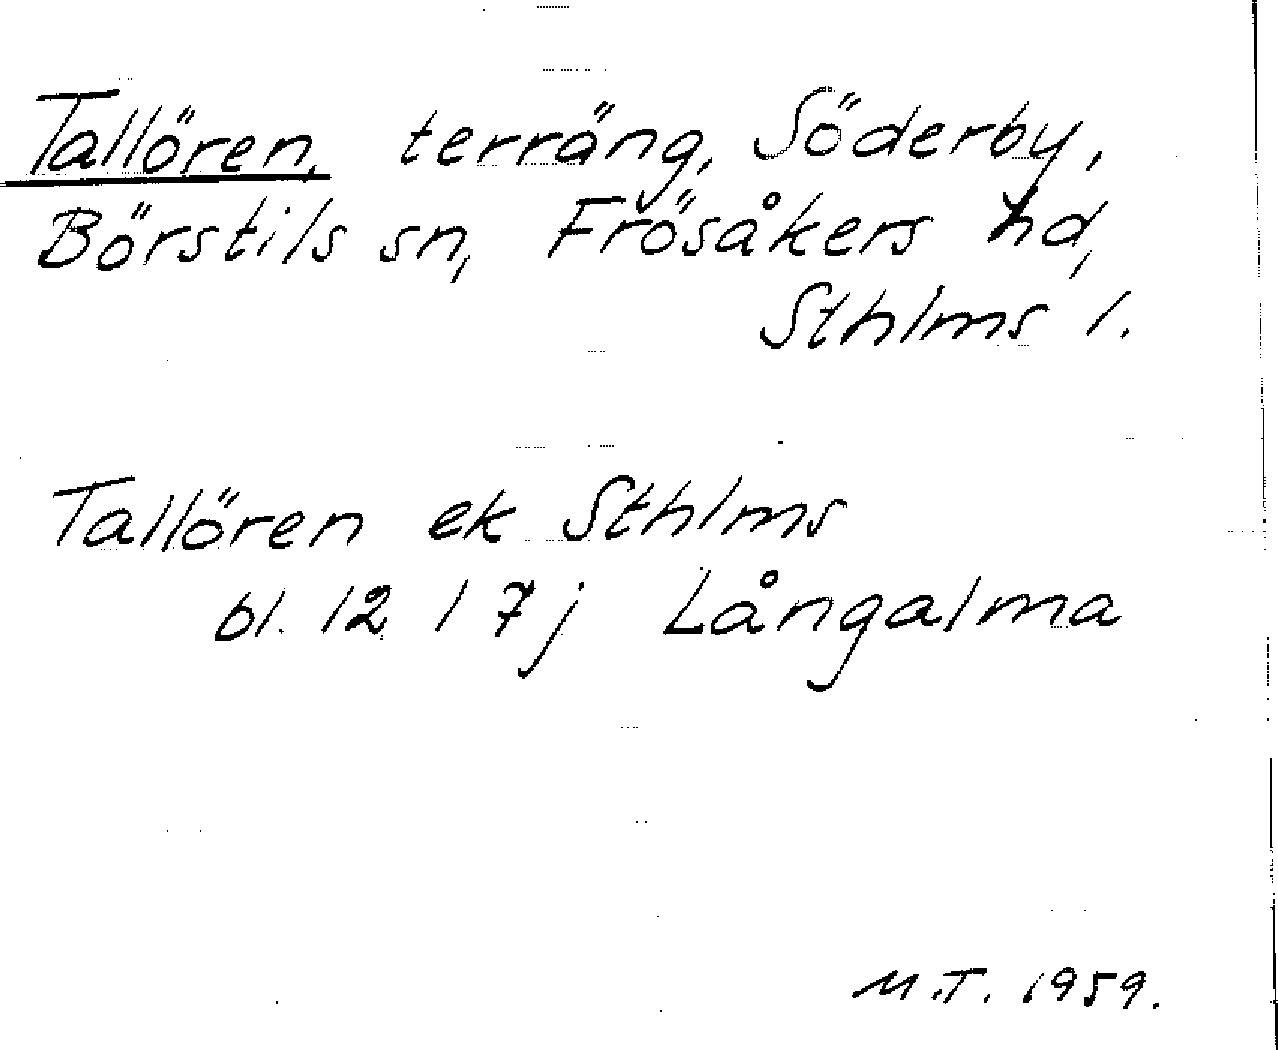 Tallören, terräng, Söderby,
Börstils sn, Frösåkers hd,
Sthlms l.
Tallören ek Sthlms
bl. 12 I 7j Långalma
M.T. 1959.